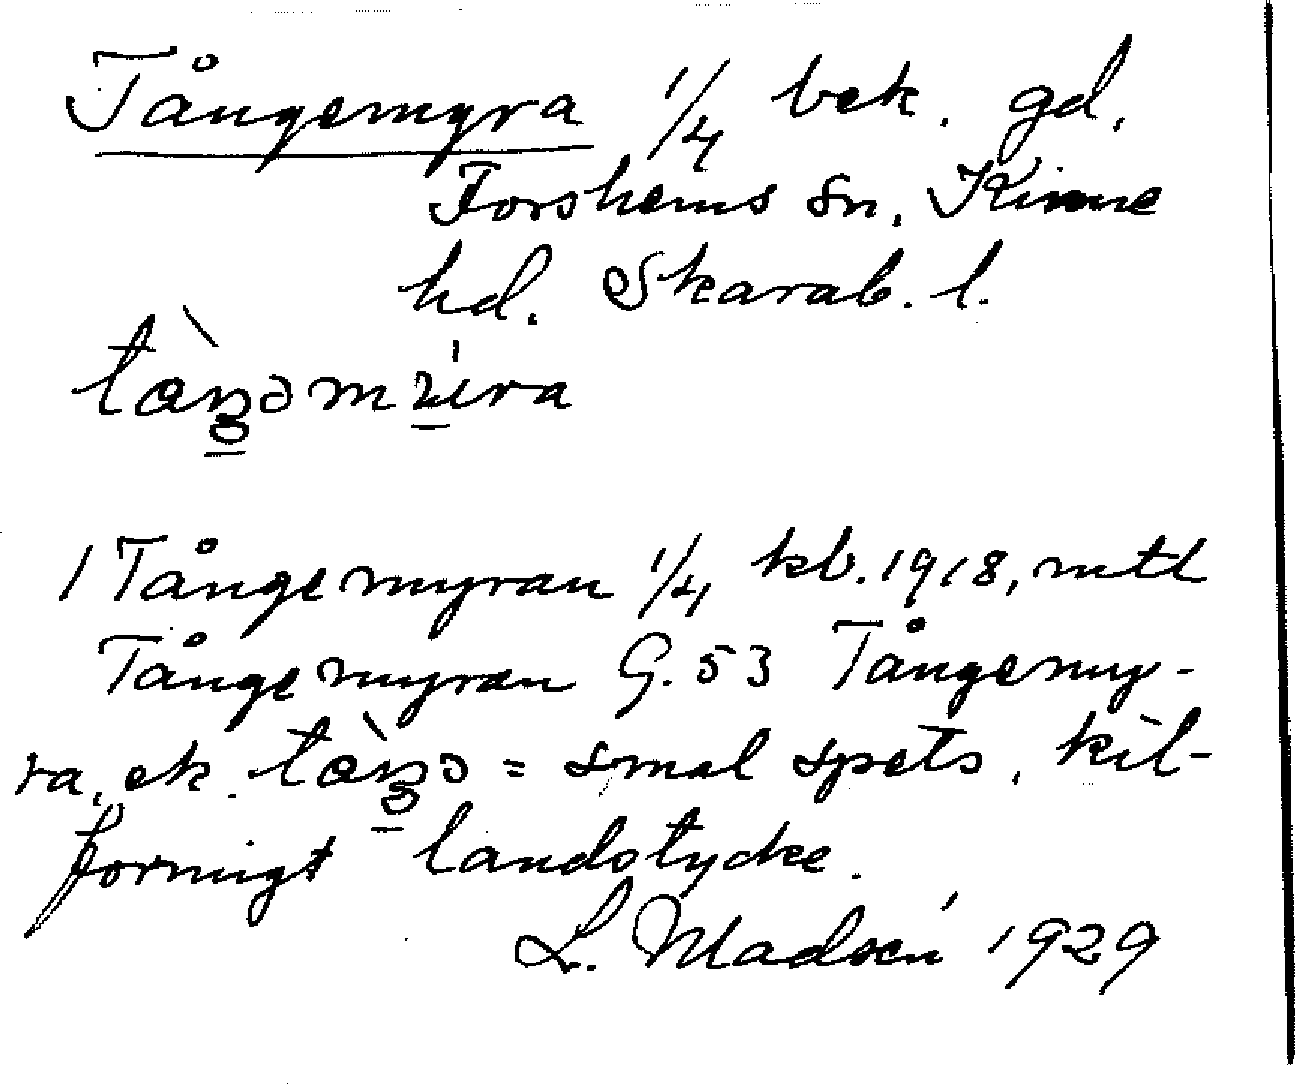 Tångemyra 1/4 bek. gd.
Forshems sn. Kinne
hd. Skarab. l.
1 Tångemyran 1/4 kb. 1918, mtl
Tångemyran G. 53 Tångemy-
ra, ek. = smal spets, kil-
formigt landstycke.
L. Madsén 1929